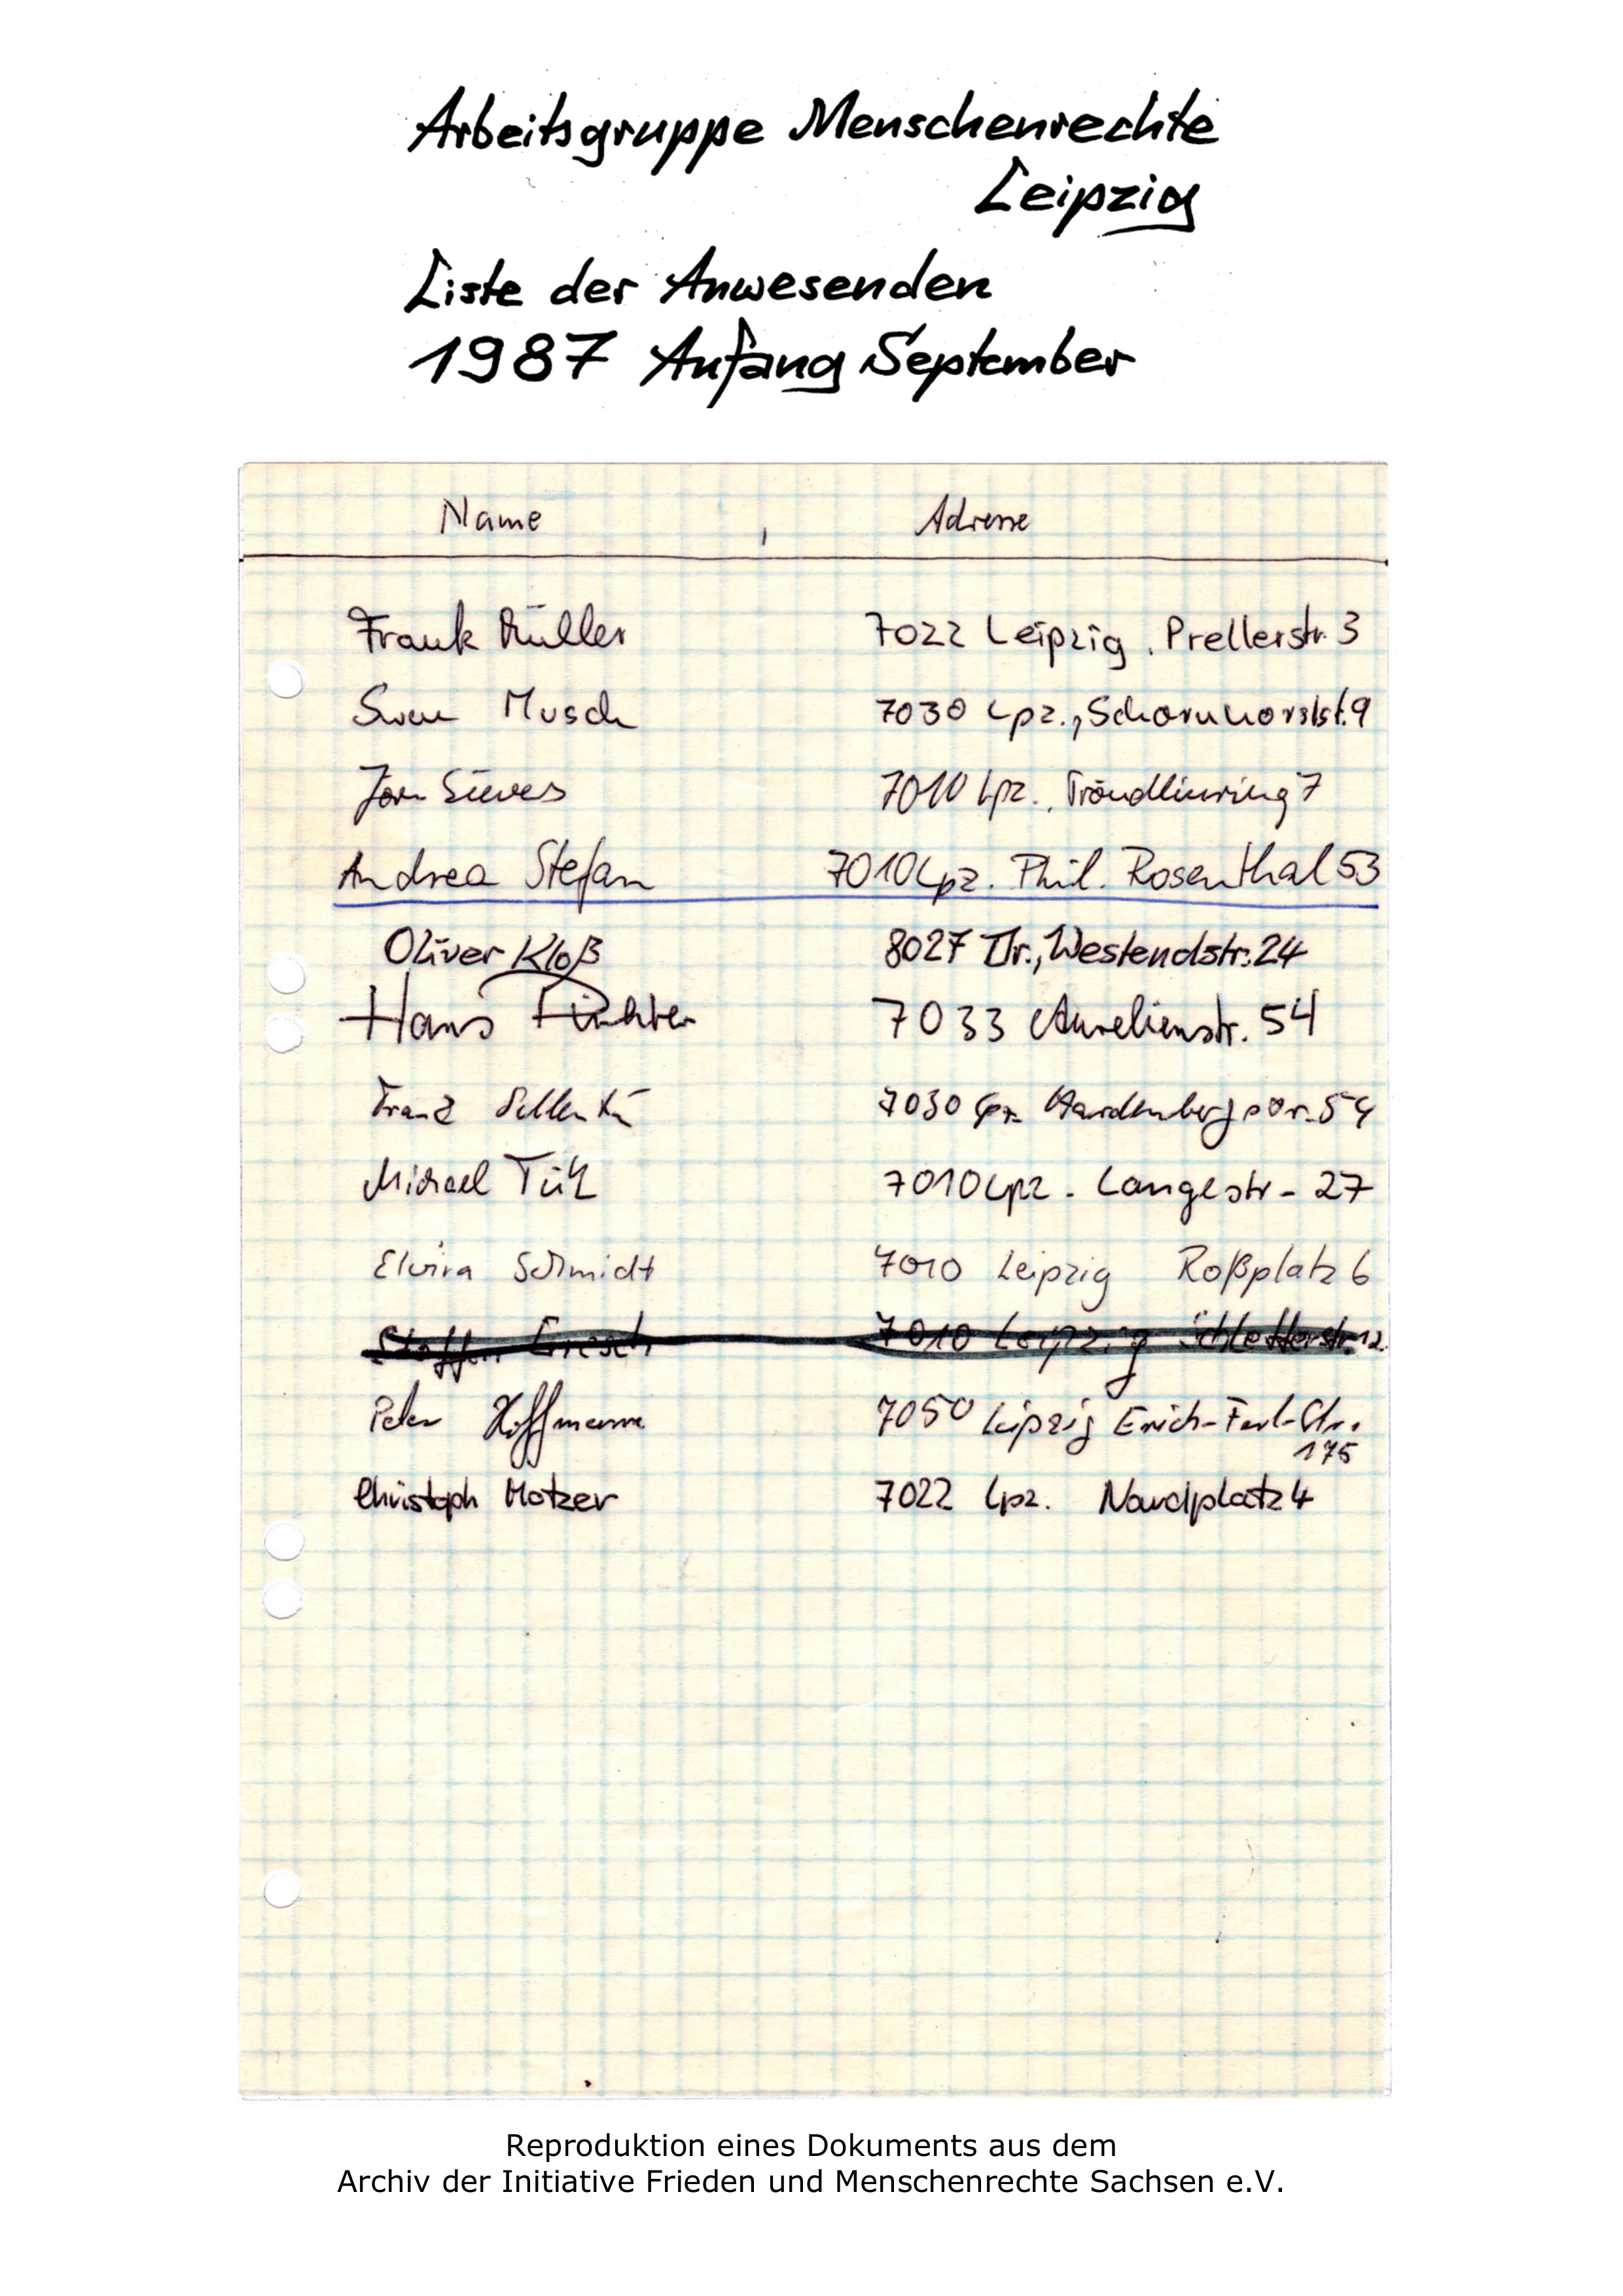 Arbeitsgruppe Menschenrechte
Leipzig
Liste der Anwesenden
1987 Anfang September
Name , Adresse
Frank Müller 7022 Leipzig, Prellerstr. 3
Sven Musch 7030 Lpz., Scharnhorststr. 9
Jörn Sievers 7010 Lpz., Tröndlinring 7
Andrea Stefan 7010 Lpz. Phil. Rosenthal 53
Oliver Kloß 8027 Dr., Westendstr. 24
Hans 7033 Aurelienstr. 54
Franz 7030 Lpz. Hardenbergstr. 54
Michael 7010 Lpz - Langestr - 27
Elvira Schmidt 7010 Leipzig Roßplatz 6
Steffen Gresch 7010 Leipzig Schletterstr. 12
Peter Hoffmann 7050 Leipzig Erich-Ferl-Str.
175
Christoph Motzer 7022 Lpz. Nordplatz 4
Reproduktion eines Dokuments aus dem
Archiv der Initiative Frieden und Menschenrechte Sachsen e.V.